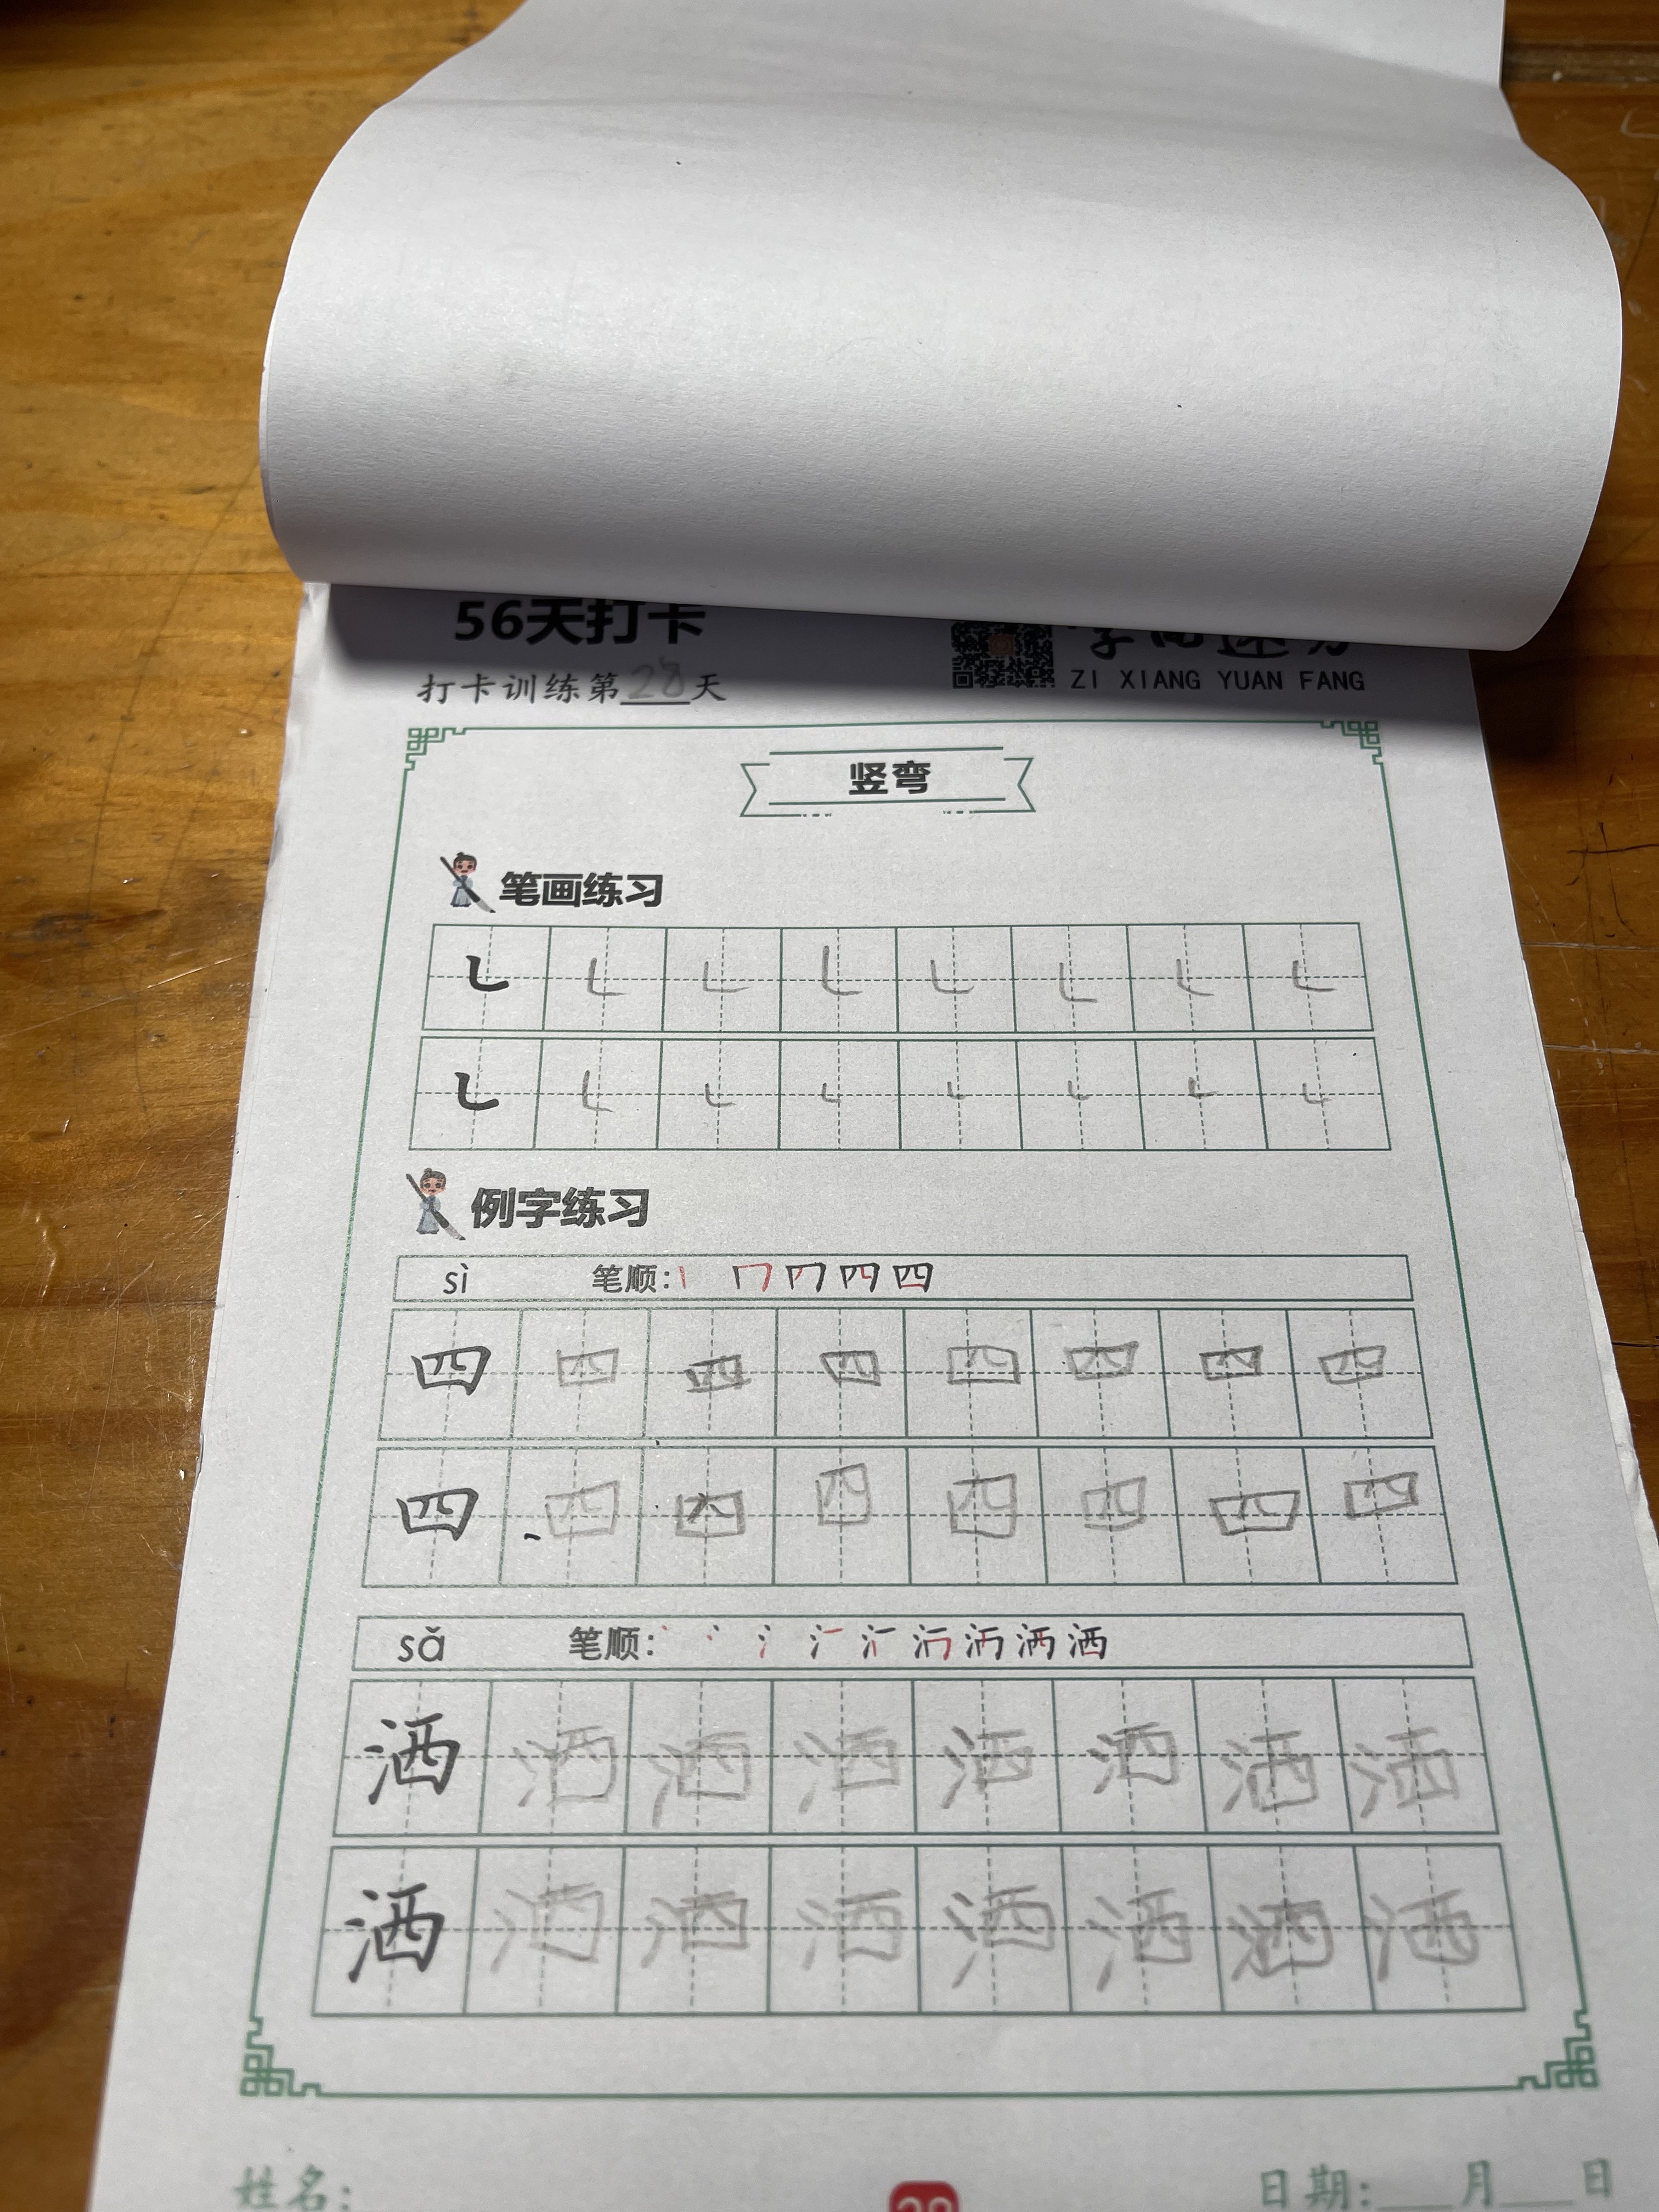 56天打卡
打卡训练第28天
ZI XIANG YUAN FANG
竖弯
笔画练习
㇄ ㇄ ㇄ ㇄ ㇄ ㇄ ㇄ ㇄
㇄ ㇄ ㇄ ㇄ ㇄ ㇄ ㇄ ㇄
例字练习
sì 笔顺: 四
四 四 四 四 四 四 四 四
四 四 四 四 四 四 四 四
sǎ 笔顺: 洒
洒 洒 洒 洒 洒 洒 洒 洒
洒 洒 洒 洒 洒 洒 洒 洒
姓名: 日期:___月___日